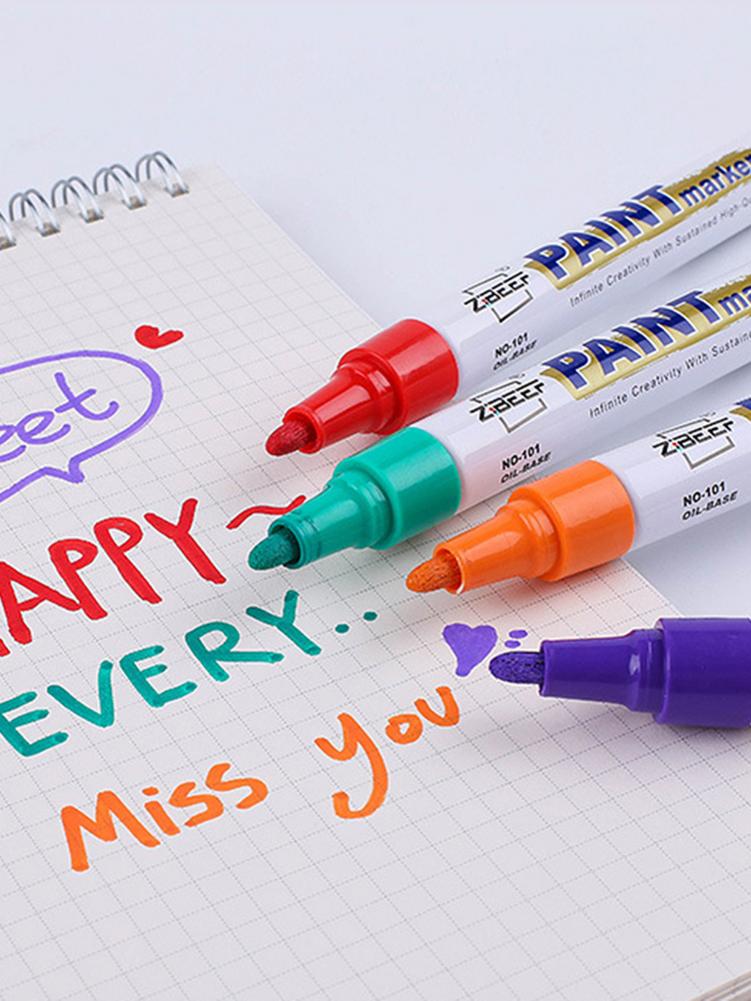 PAINT marker
Infinite Creativity With Sustained High-Qu
ZiBEEP
NO-101
OIL-BASE
PAINT ma
Infinite Creativity With Sustaine
ZiBEEP
NO-101
OIL-BASE
ZiBEEP
NO-101
OIL-BASE
eet
APPY ~
EVERY..
Miss You